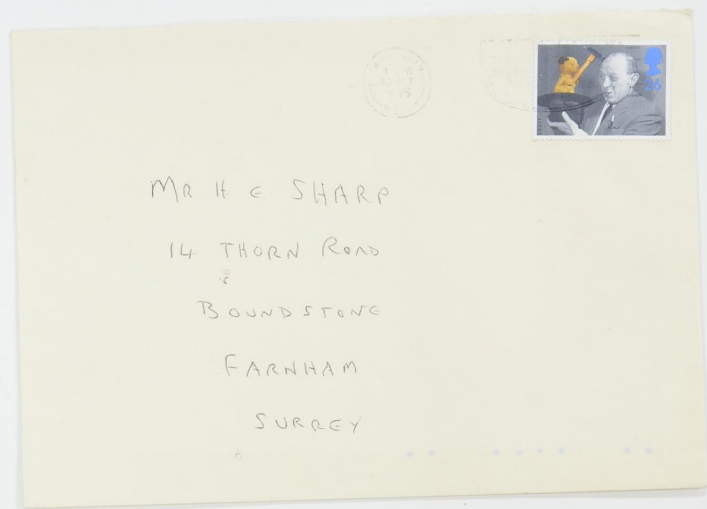 MR H E SHARP
14 THORN ROAD
BOUNDSTONE
FARNHAM
SURREY